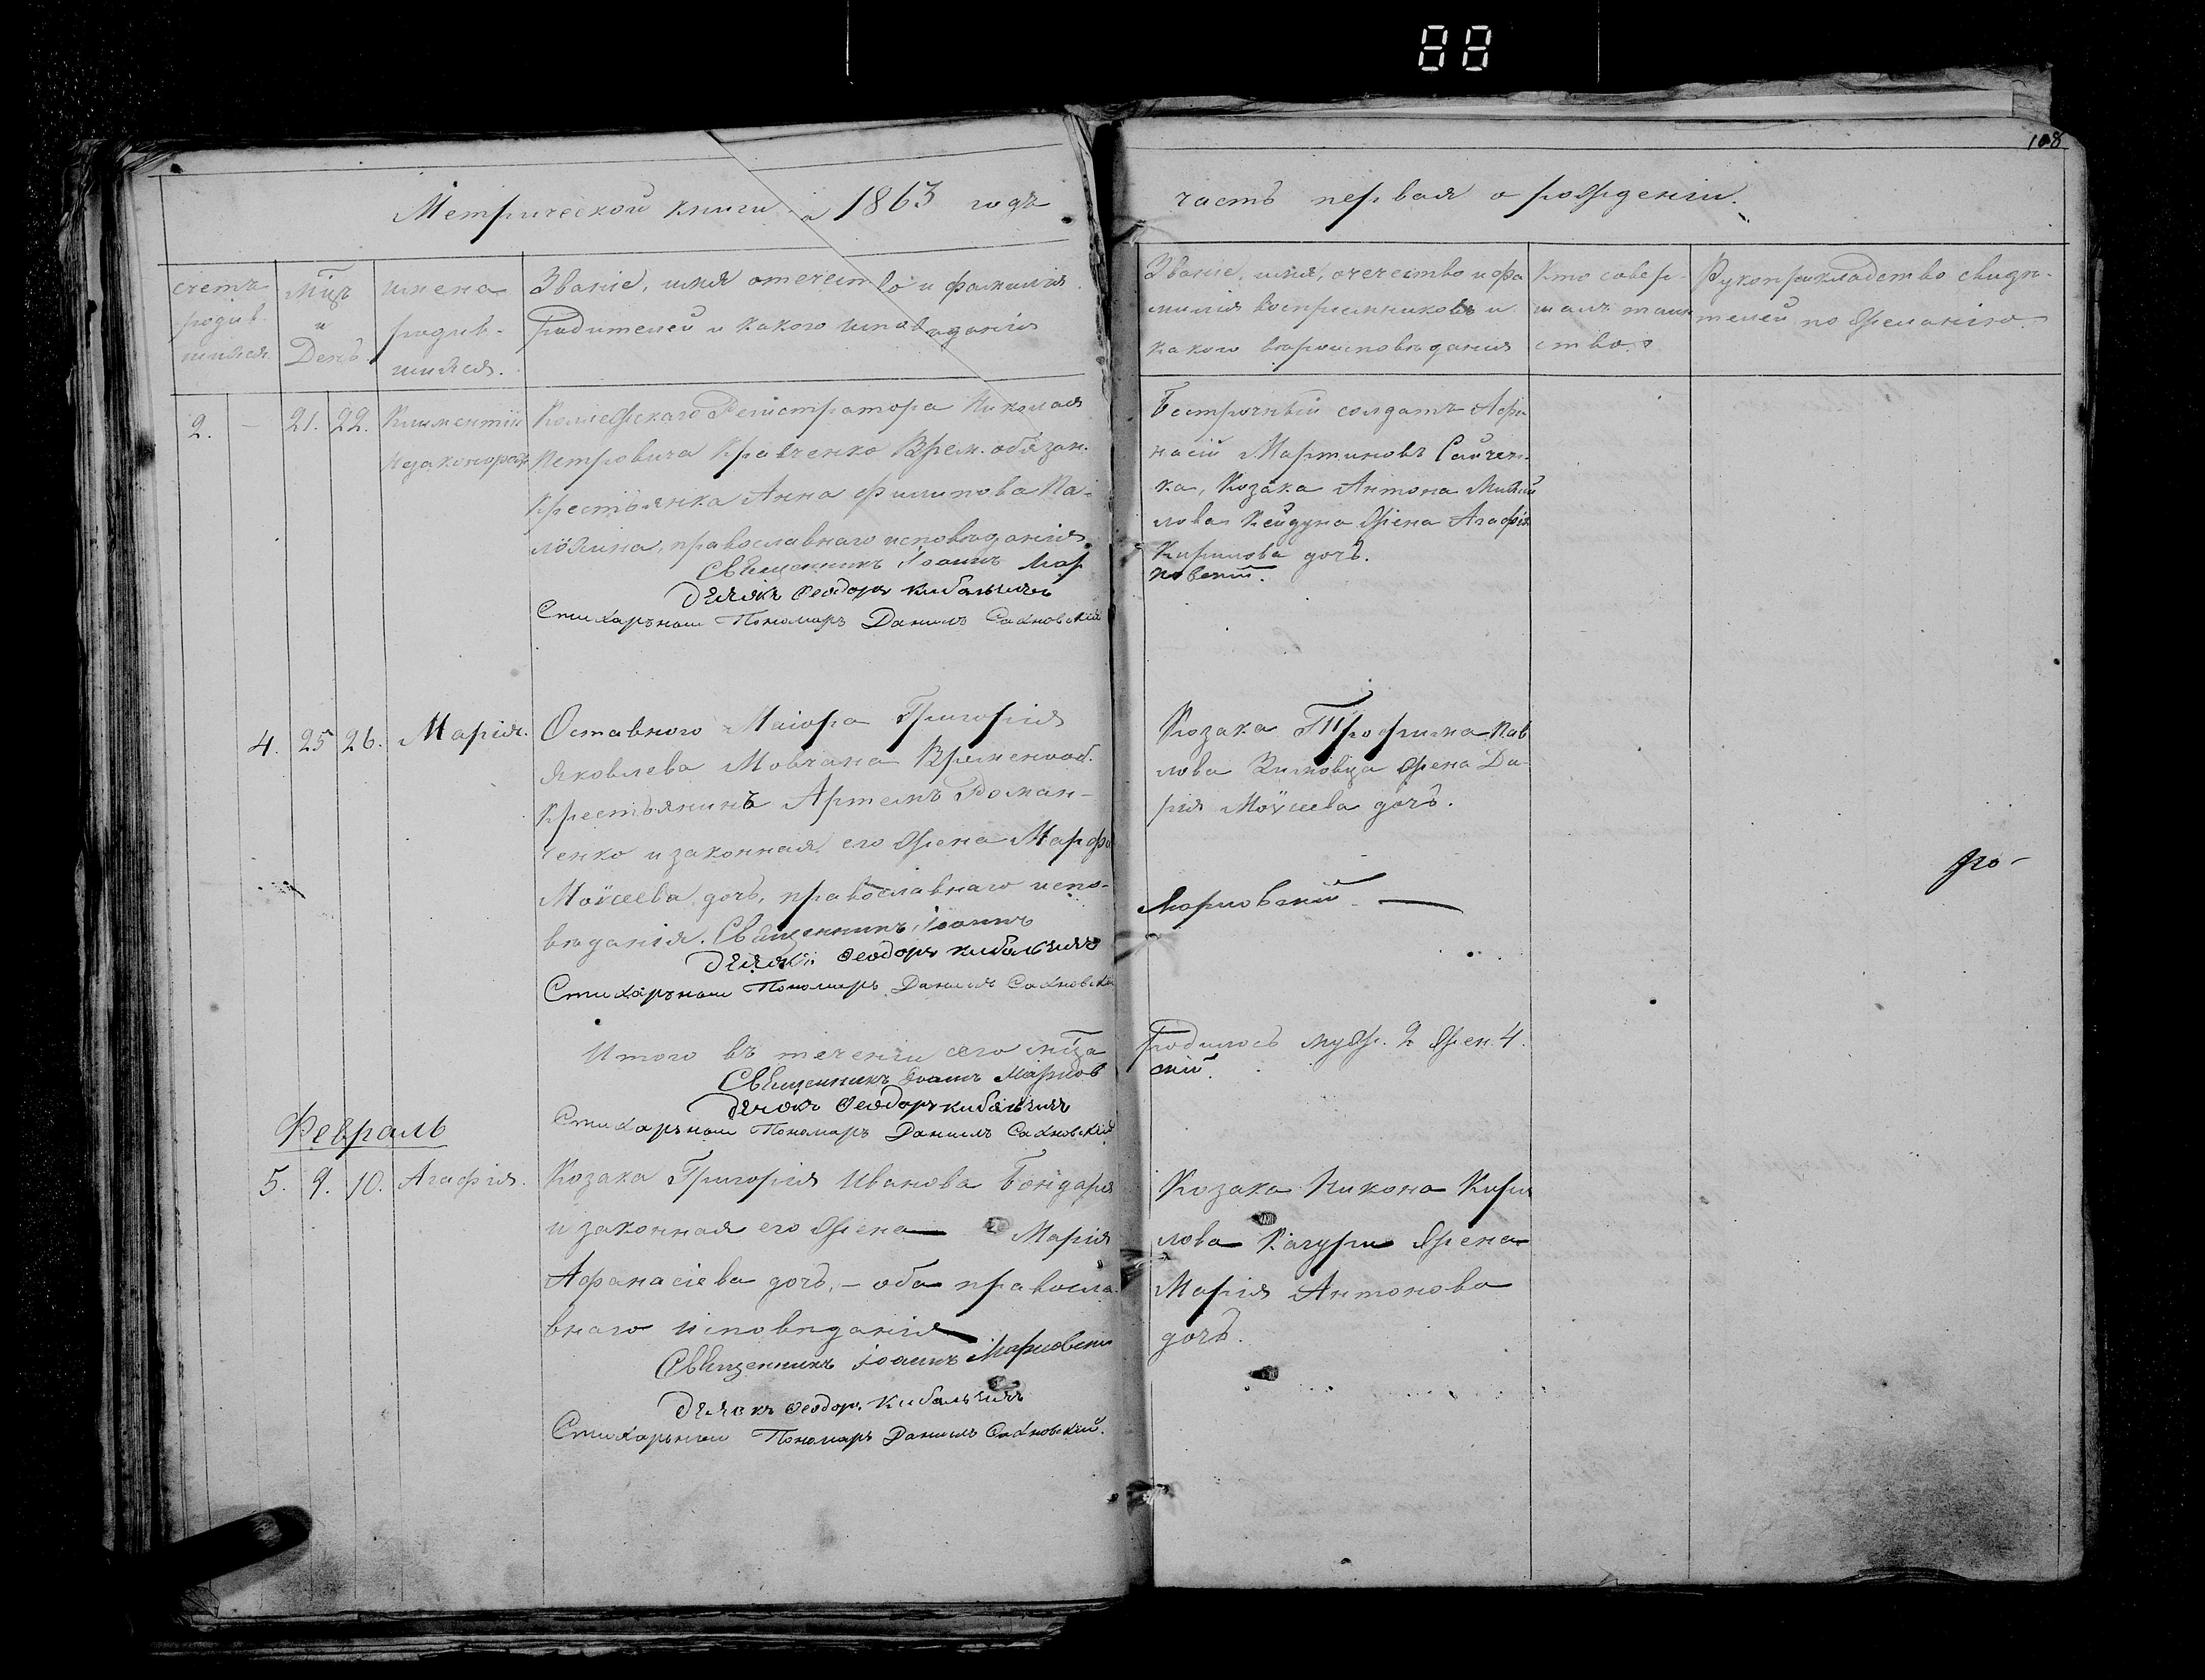 88
108
Метрической книги на 1863 годъ
часть первая о рожденіи.
счетъ родив шихся
Мцъ и День
имена родив- шихся.
Званіе, имя отечество и фамилія
Родителей и какого исповеданія
Званіе, имя, очечество и фа
милія воспріемниковъ и
какого вероисповеданія
Кто совер-
шалъ таин
ство.
Рукоприкладство свиде-
телей по желанію.
2. - 21. 22. Климентій
незаконорож
Колежскаго Регистратора Николая
Петровича Кравченко Врем. обязан.
Крестьянка Анна Филипова
православнаго исповеданія
Священникъ Іоаннъ Мар
Дьячокъ Феодоръ Кибальчичъ
Стихарный Пономарь Даніилъ Сахновскій
Безсрочный солдатъ Афа
насій Мартиновъ
ка, Козака Антона Михай
лова жена Агафія
Кирилова дочь.
новскій.
4. 25 26. Марія.
Оставного Маіора Григорія
Яковлева Мовчана Временооб.
Крестьянинъ Артемъ Роман-
ченко и законная его жена Марфа
Моѵсеева дочь, православнаго испо-
веданія. Священникъ Іоаннъ
Дьячокъ Феодоръ Кибальчичъ
Стихарный Пономарь Даніилъ Сахновскій
Козака Трофима Пав
лова жена Да-
рія Моѵсеева дочь.
Марновскій.
Итого въ теченіи сего мца
Священникъ Іоаннъ Марнов
Дьячокъ Феодоръ Кибальчичъ
Стихарный Пономарь Даніилъ Сахновскій
Родилось муж. 2 жен. 4.
скій.
Февраль
5. 9. 10. Агафія.
Козака Григорія Иванова Бондаря
и законная его жена Марія
Афанасіева дочь, - оба правосла
внаго исповеданія
Священникъ Іоаннъ Марновскій
Дьячокъ Феодоръ Кибальчичъ
Стихарный Пономарь Даніилъ Сахновскій.
Козака Никона Кири
лова Качури жена
Марія Антонова
дочь.